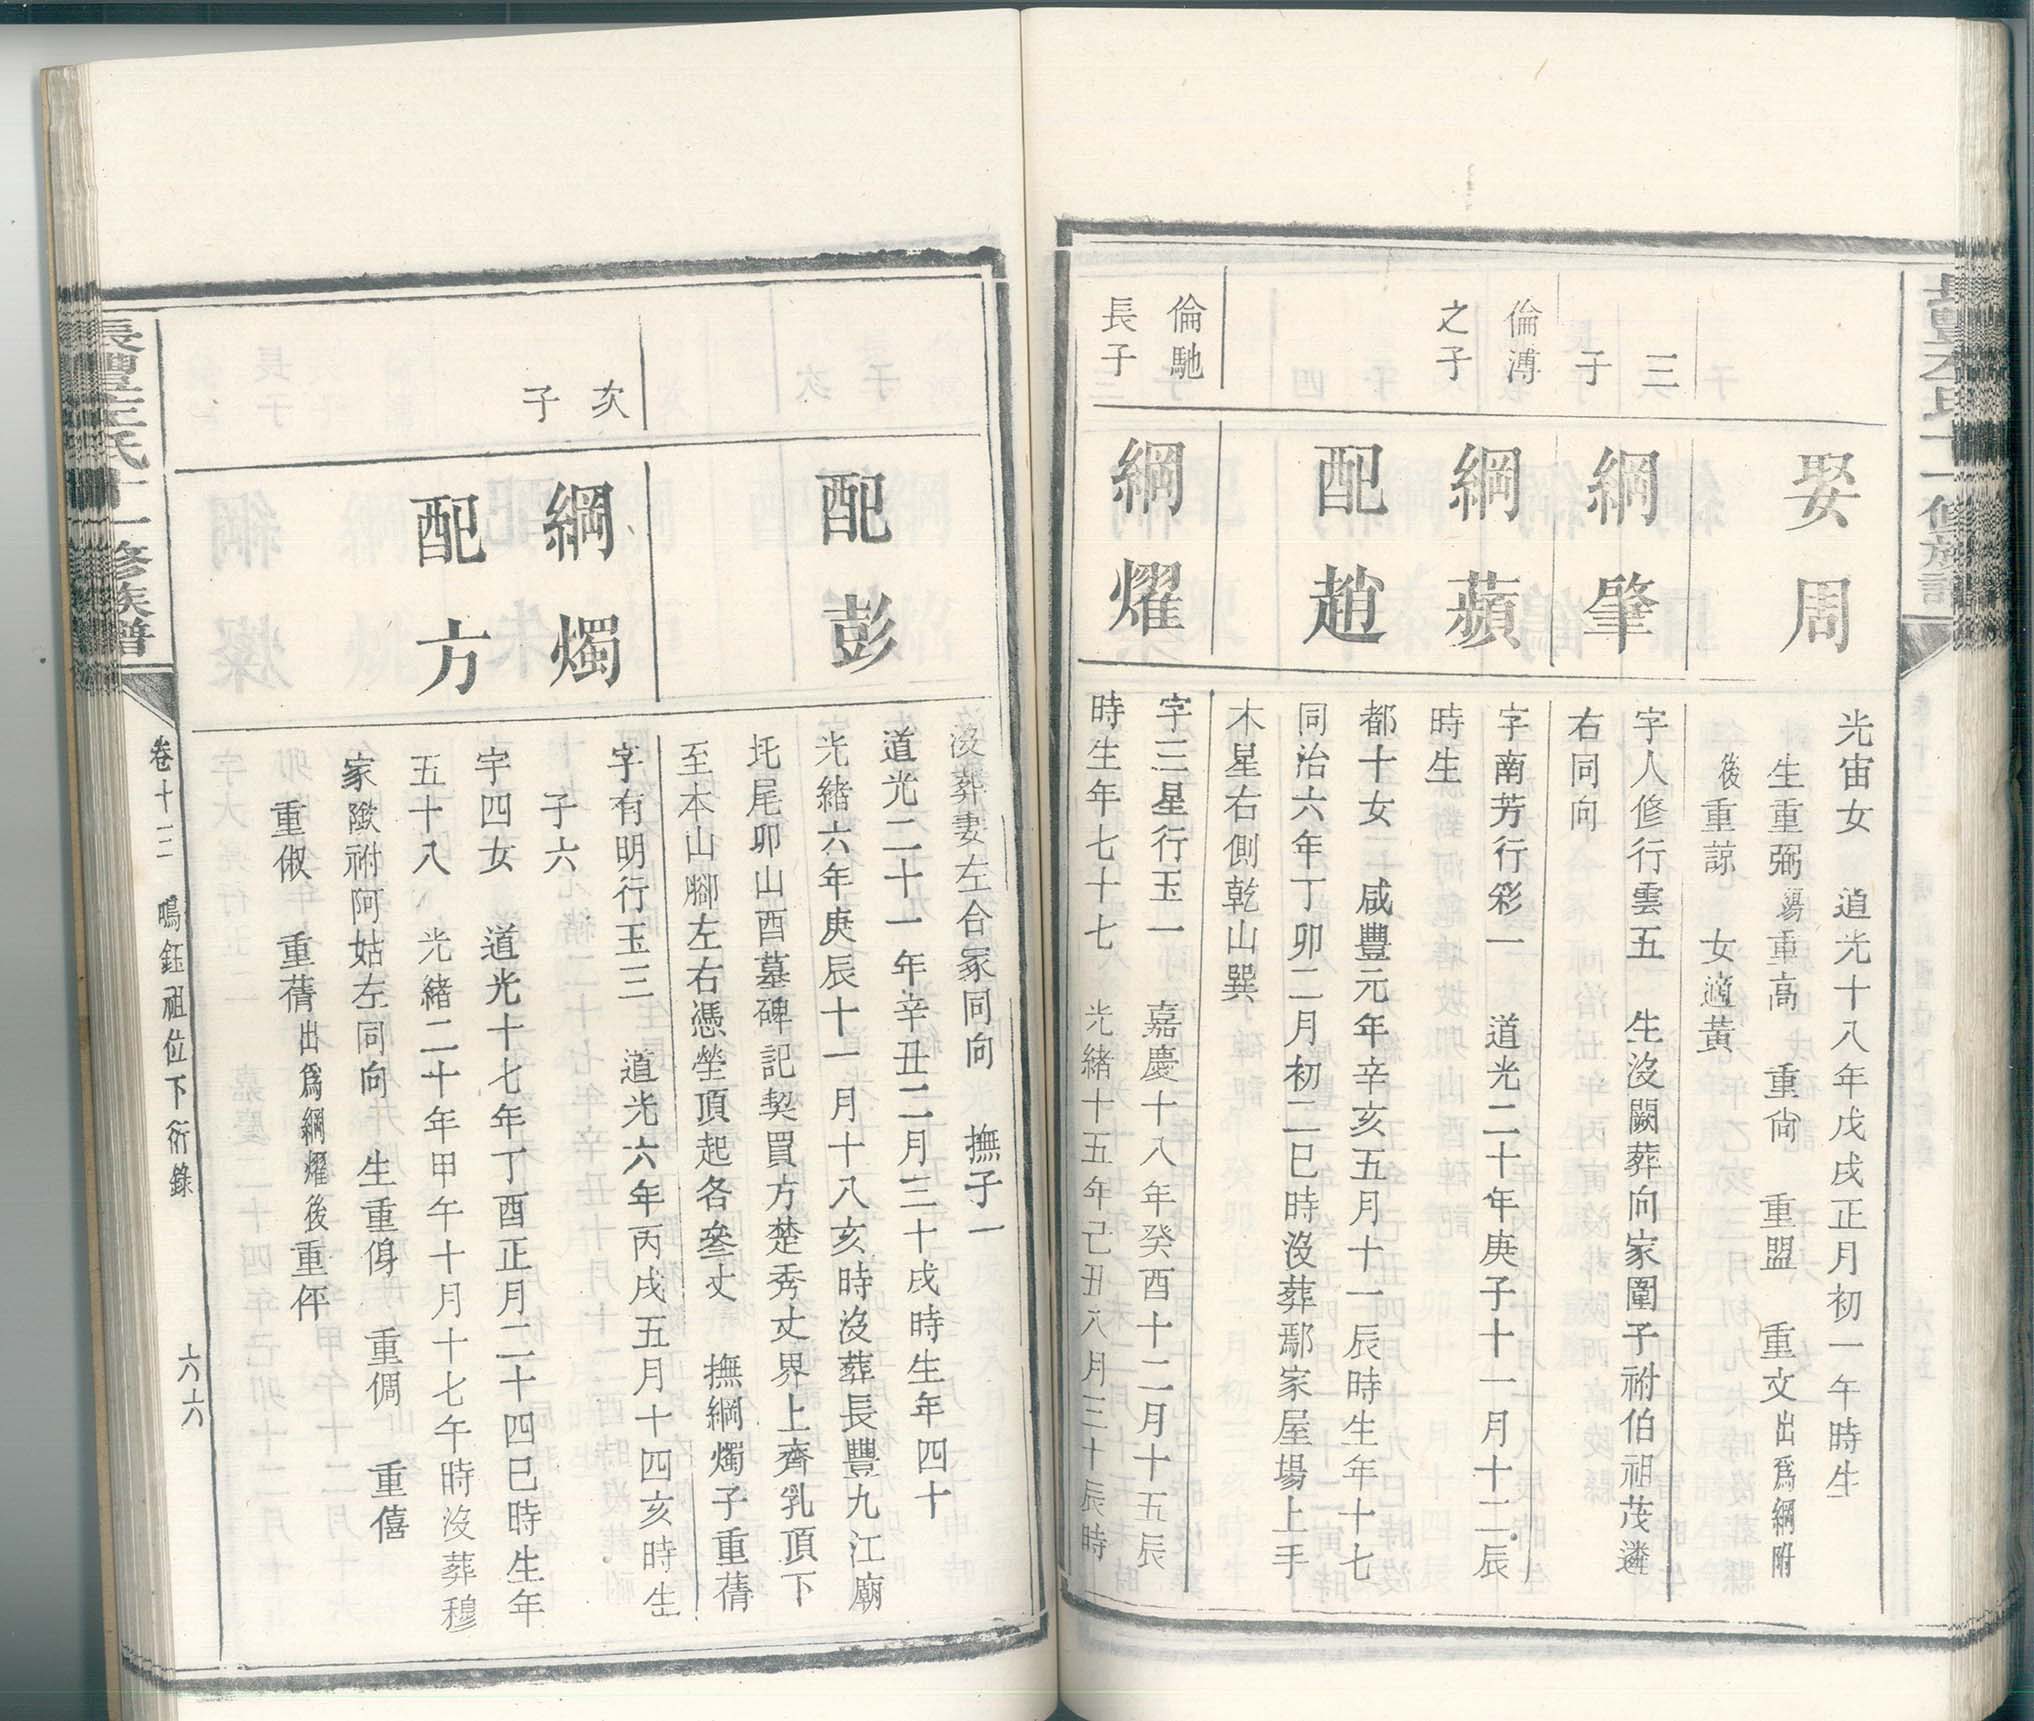 娶周
光宙女　道光十八年戊戌正月初一午時生
生重弼殤重高　重尙　重盟　重文出爲綱附
後重諒　女適黃
三
子
綱肇
字人修行雲五　生沒闕葬向家園子祔伯祖茂遴
右同向
倫溥
之子
綱蘋
字南芳行彩一　道光二十年庚子十一月十二辰
時生
配趙
都十女　咸豐元年辛亥五月十一辰時生年十七
同治六年丁卯二月初二巳時沒葬鄢家屋場上手
木星右側乾山巽
倫馳
長子
綱燿
字三星行玉一　嘉慶十八年癸酉十二月十五辰
時生年七十七　光緒十五年己丑八月三十辰時
沒葬妻左合冢同向　撫子一
配彭
道光二十一年辛丑二月三十戌時生年四十
光緒六年庚辰十一月十八亥時沒葬長豐九江廟
圫尾卯山酉墓碑記契買方楚秀丈界上齊乳頂下
至本山腳左右憑塋頂起各叄丈　撫綱燭子重蒨
次
子
綱燭
字有明行玉三　道光六年丙戌五月十四亥時生
子六
配方
字四女　道光十七年丁酉正月二十四巳時生年
五十八　光緒二十年甲午十月十七午時沒葬穆
家隒祔阿姑左同向　生重侽　重倜　重僖
重俶　重蒨出爲綱燿後重伻
長豐李氏十一修族譜
卷十三　鳴鈺祖位下衍錄　六六